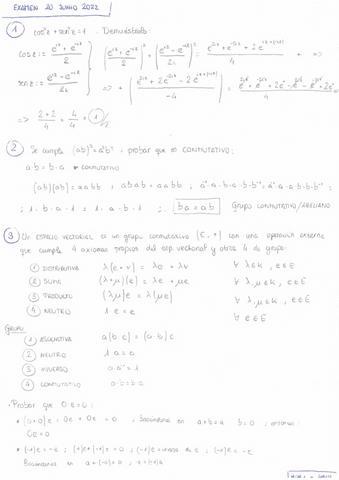 EXAMEN 20 JUNIO 2022
① cos²z + sen²z = 1 . Demuéstralo:
cos z := (e^{iz} + e^{-iz})/2
sen z := (e^{iz} - e^{-iz})/2i
=> (2+2)/4 = 4/4 = 1
② Se cumple (ab)² = a²b², probar que es CONMUTATIVO:
a·b = b·a → CONMUTATIVO
(ab)(ab) = aabb ; abab = aabb ; a⁻¹·a·b·a·b·b⁻¹ = a⁻¹·a·a·b·b·b⁻¹ ;
; 1·b·a·1 = 1·a·b·1 ; ba = ab GRUPO CONMUTATIVO/ABELIANO
③ Un ESPACIO VECTORIAL es un grupo conmutativo (E, +) con una operación externa
que cumple 4 axiomas propios del esp. vectorial y otros 4 de grupo:
① DISTRIBUTIVA λ(e+v) = λe + λv ∀ λ∈K, e∈E
② SUMA (λ+μ)(e) = λe + μe ∀ λ,μ∈K, e∈E
③ PRODUCTO (λμ)e = λ(μe) ∀ λ,μ∈K, e∈E
④ NEUTRO 1·e = e ∀ e∈E
GRUPO
① ASOCIATIVA a(b·c) = (a·b)c
② NEUTRO 1·a = a
③ INVERSO a·a⁻¹ = 1
④ CONMUTATIVO a·b = b·a
· Probar que 0·e = 0 :
• (0+0)e = 0e + 0e = 0 , basándonos en a+b=a b=0 ; entonces:
0e = 0
• (-1)e = -e ; (1)e + (-1)e = 0 ; (-1)e = inverso de e ; (-1)e = -e
Basándonos en a + (-a) = 0